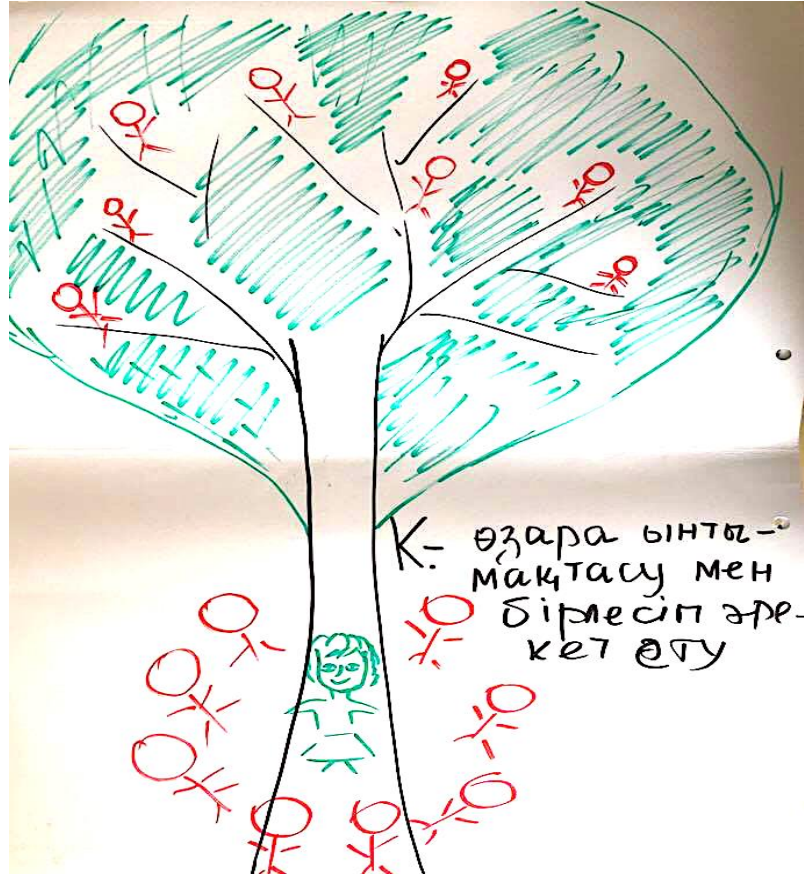 К.- өзара ынты-
мақтасу мен
бірлесіп әре-
кет ету